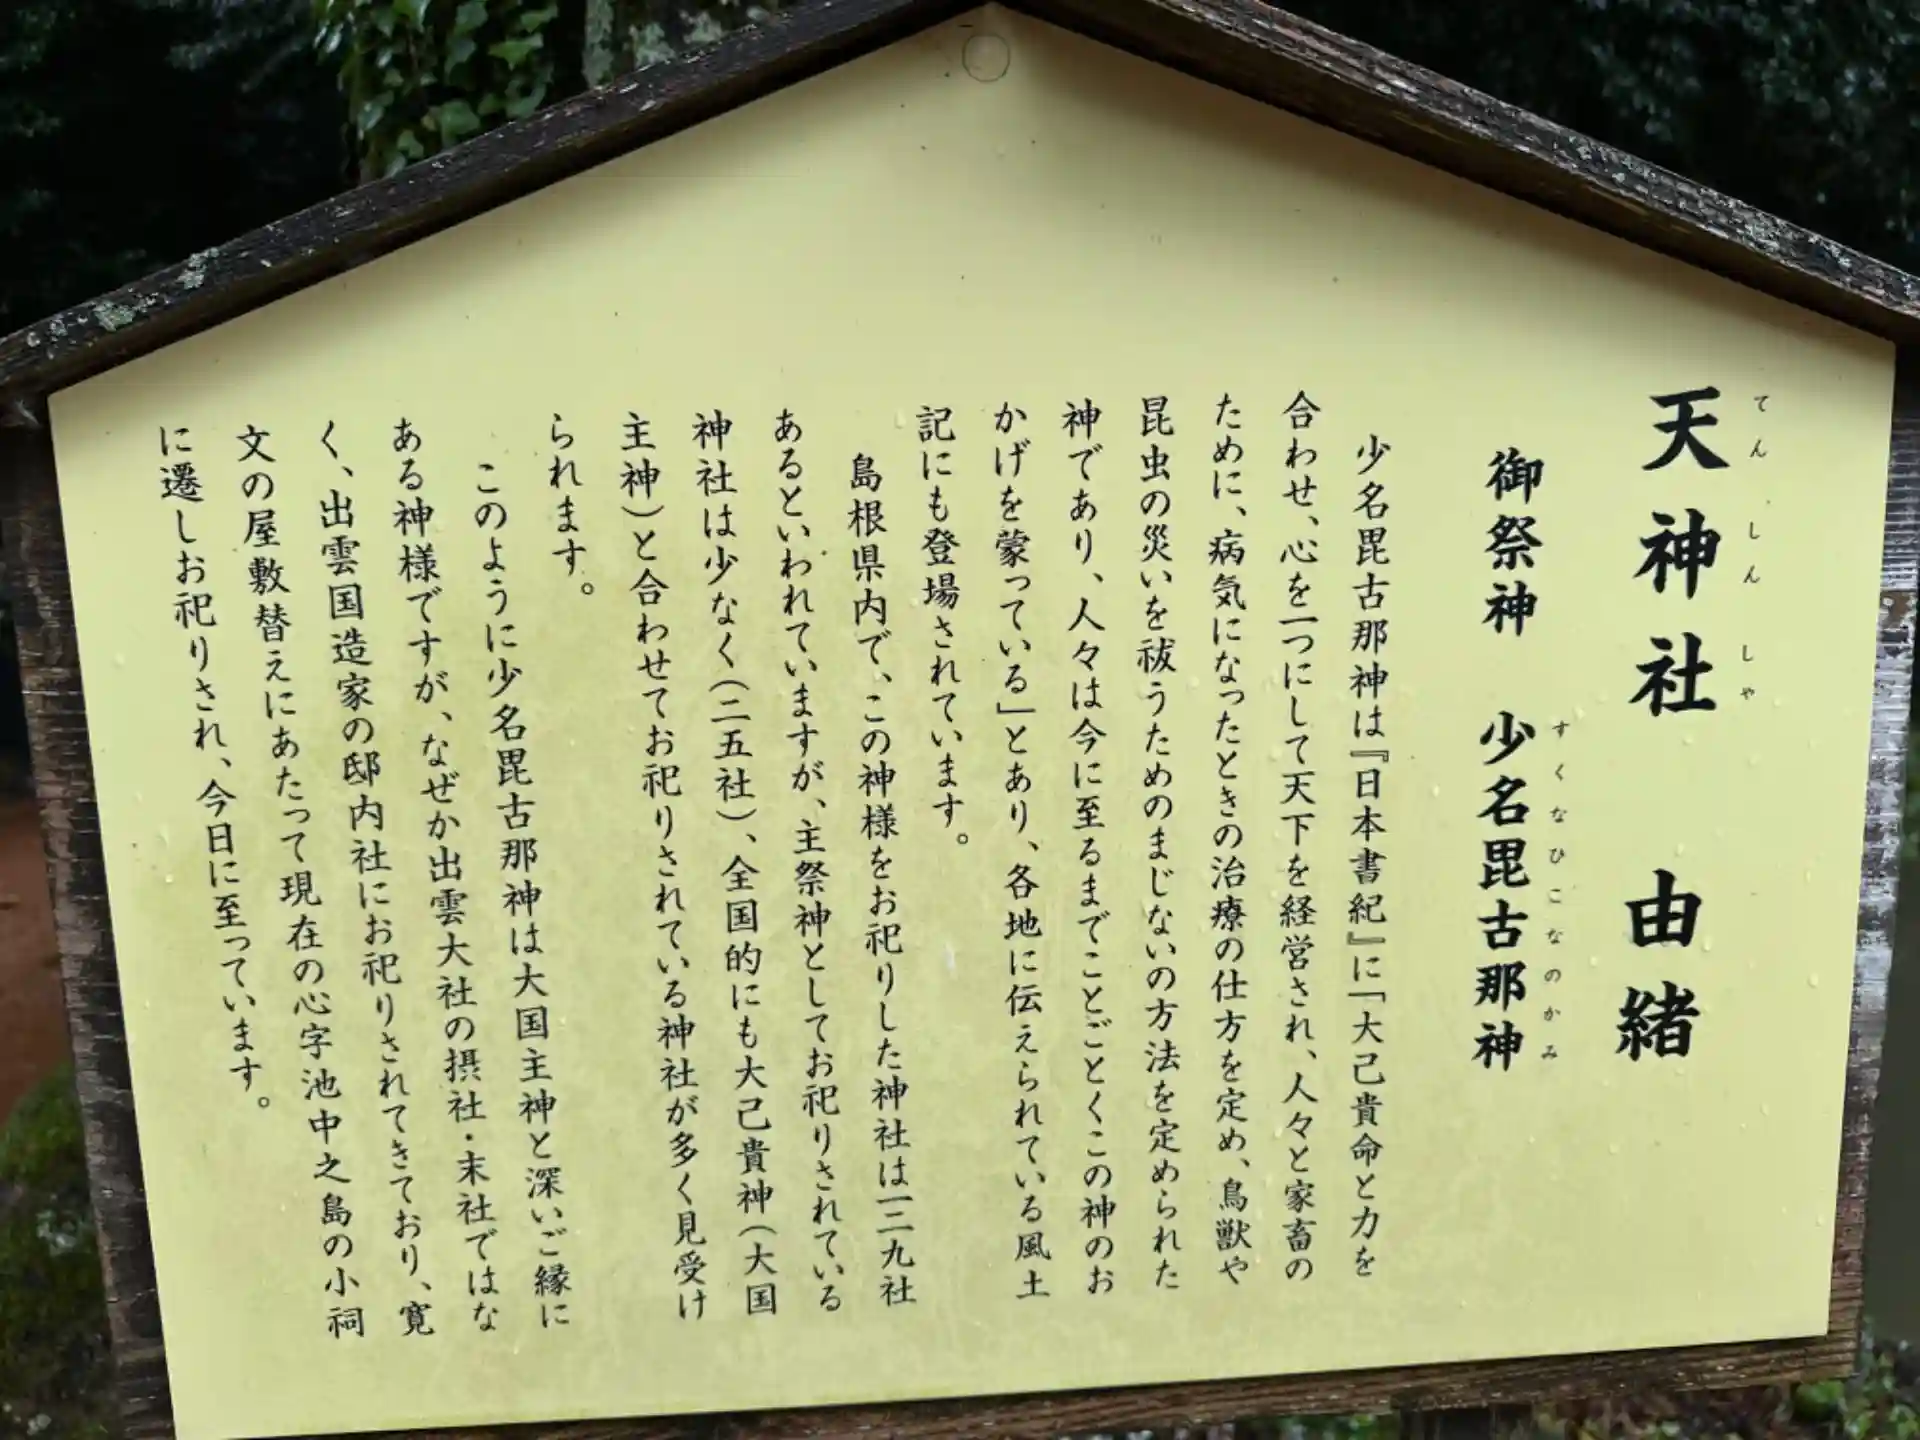 天神社　由緒
てんしんしゃ
御祭神　少名毘古那神
すくなひこなのかみ
少名毘古那神は『日本書紀』に「大己貴命と力を
合わせ、心を一つにして天下を経営され、人々と家畜の
ために、病気になったときの治療の仕方を定め、鳥獣や
昆虫の災いを祓うためのまじないの方法を定められた
神であり、人々は今に至るまでことごとくこの神のお
かげを蒙っている」とあり、各地に伝えられている風土
記にも登場されています。
島根県内で、この神様をお祀りした神社は一二九社
あるといわれていますが、主祭神としてお祀りされている
神社は少なく（二五社）、全国的にも大己貴神（大国
主神）と合わせてお祀りされている神社が多く見受け
られます。
このように少名毘古那神は大国主神と深いご縁に
ある神様ですが、なぜか出雲大社の摂社・末社ではな
く、出雲国造家の邸内社にお祀りされてきており、寛
文の屋敷替えにあたって現在の心字池中之島の小祠
に遷しお祀りされ、今日に至っています。